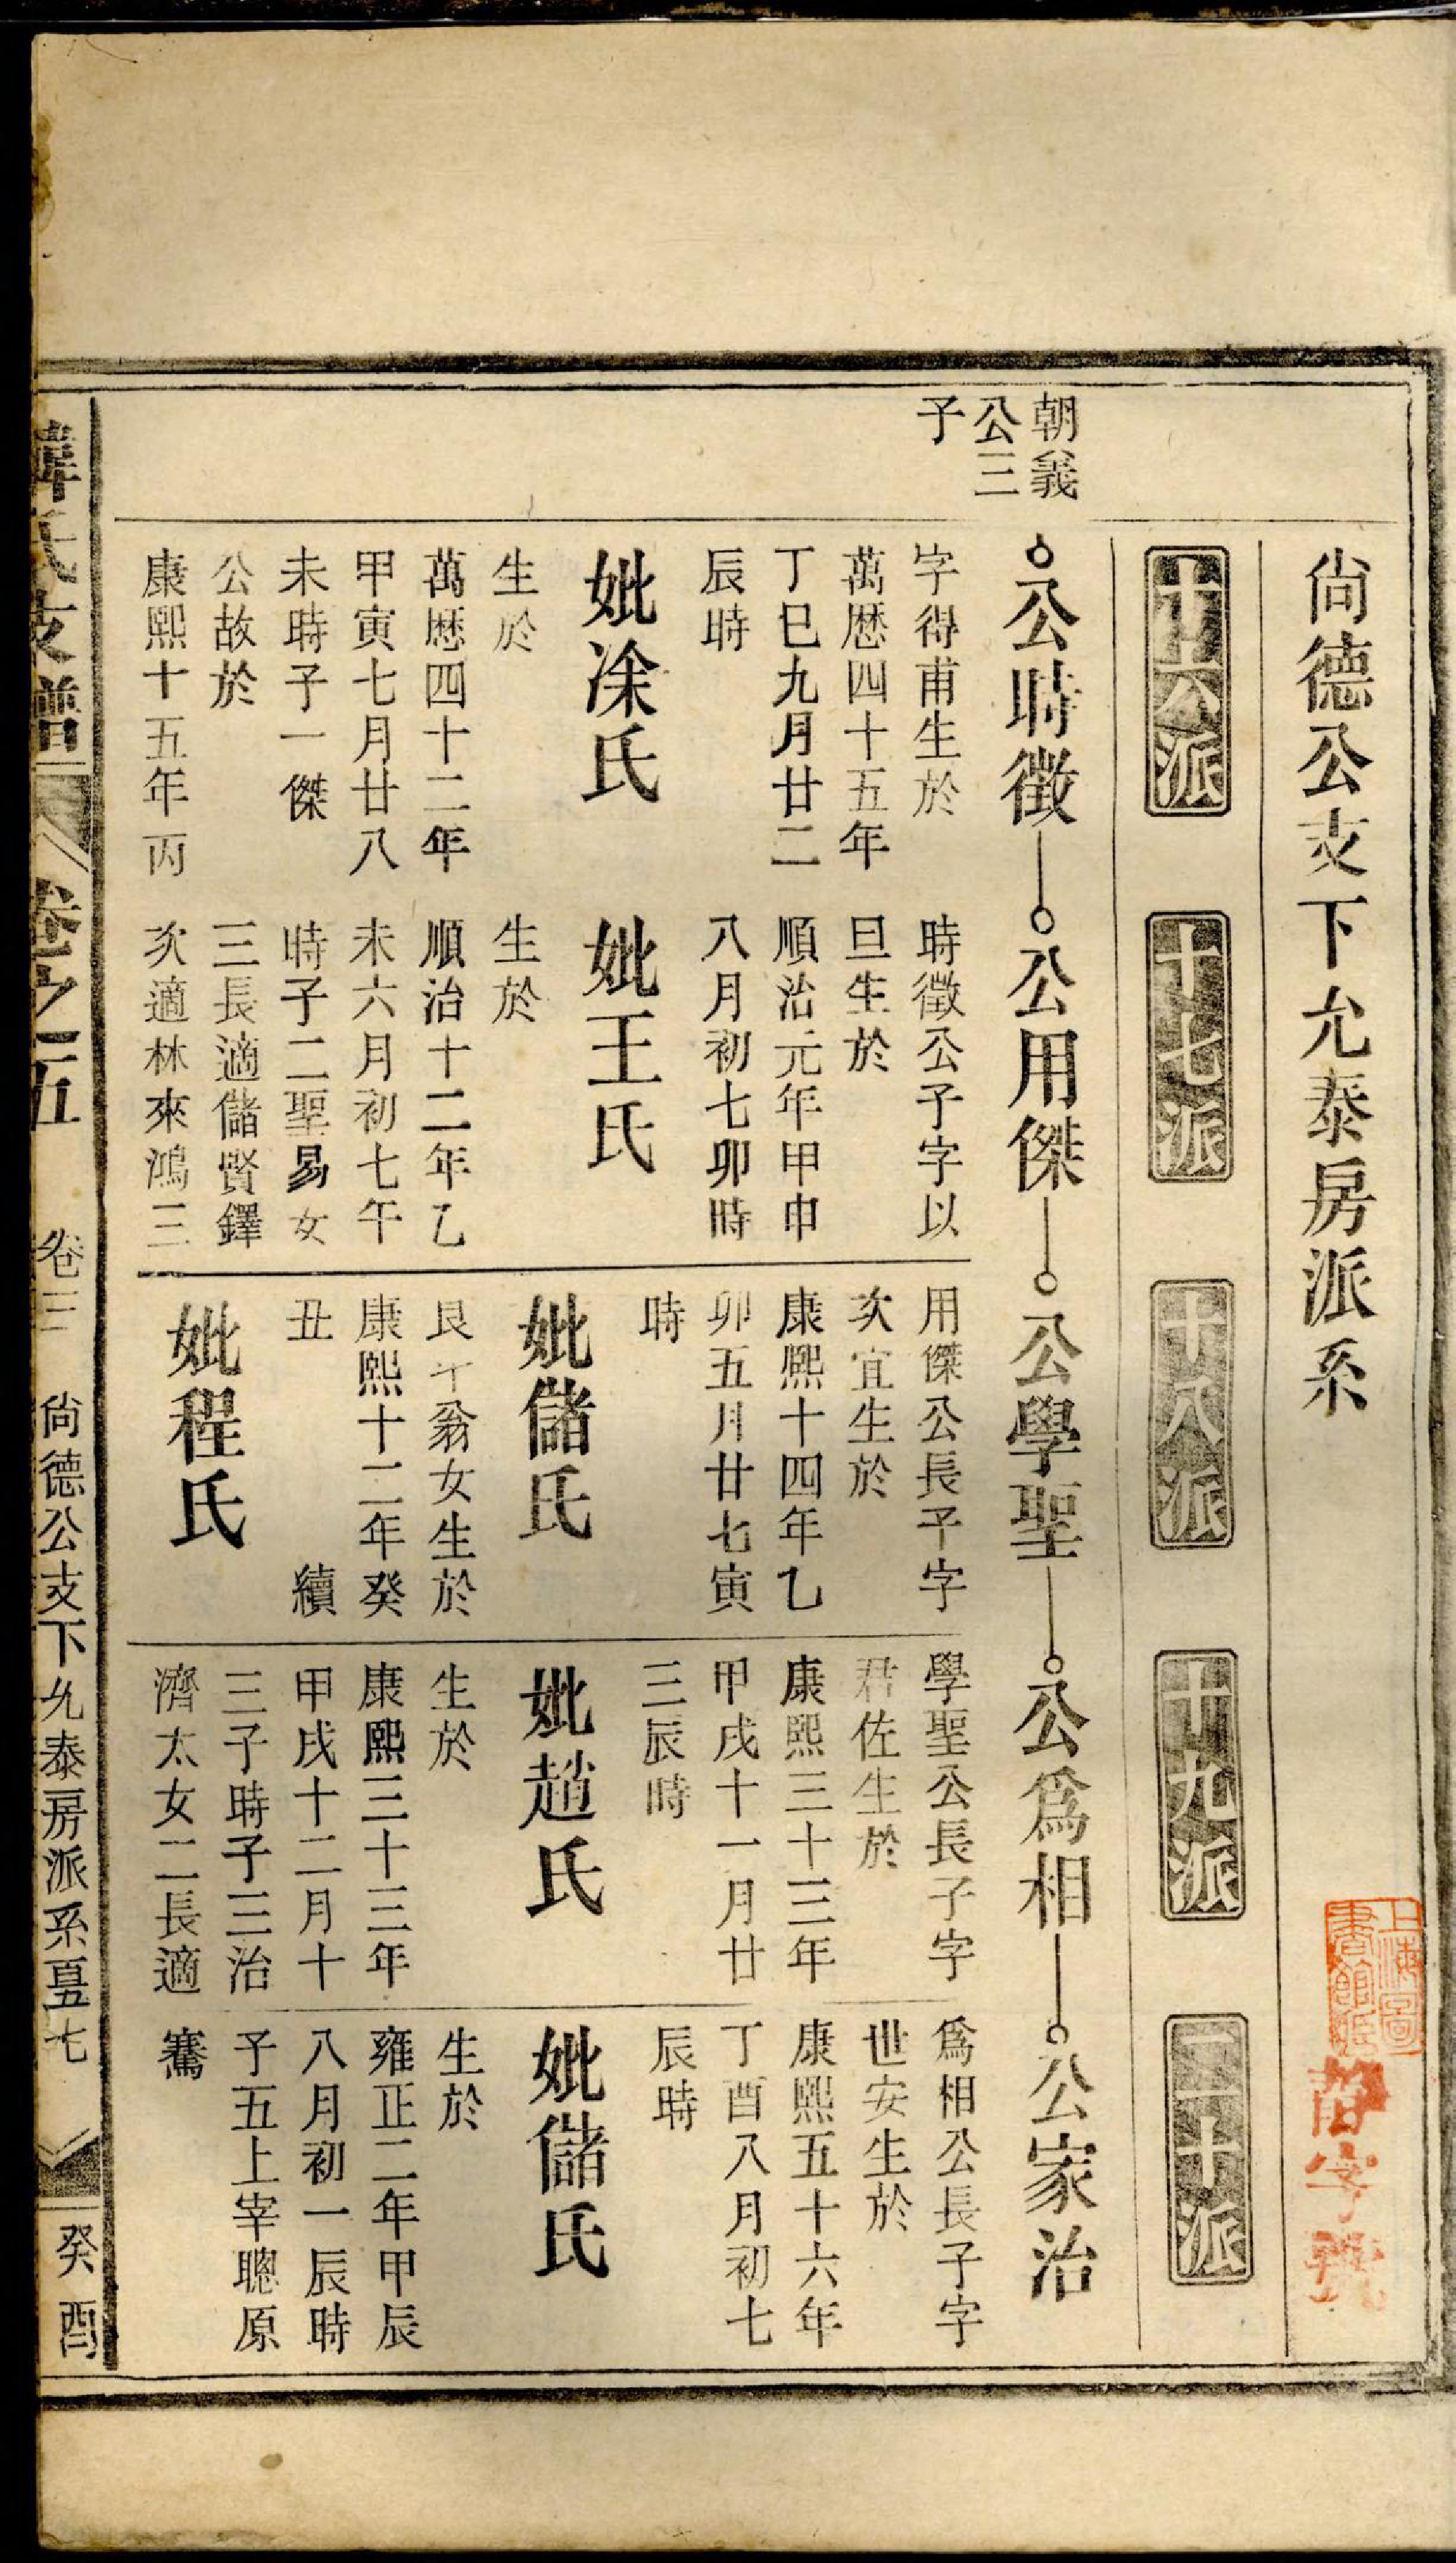 尙德公支下允泰房派系
十六派
十七派
十八派
十九派
二十派
朝義
公三
子
公時徵
字得甫生於
萬歷四十五年
丁巳九月廿二
辰時
妣凃氏
生於
萬歷四十二年
甲寅七月廿八
未時子一傑
公故於
康熙十五年丙
公用傑
時徵公子字以
旦生於
順治元年甲申
八月初七卯時
妣王氏
生於
順治十二年乙
未六月初七午
時子二聖易女
三長適儲賢鐸
次適林來鴻三
公學聖
用傑公長子字
次宜生於
康熙十四年乙
卯五月廿七寅
時
妣儲氏
艮千翁女生於
康熙十二年癸
丑 續
妣程氏
公爲相
學聖公長子字
君佐生於
康熙三十三年
甲戌十一月廿
三辰時
妣趙氏
生於
康熙三十三年
甲戌十二月十
三子時子三治
濟太女二長適
公家治
爲相公長子字
世安生於
康熙五十六年
丁酉八月初七
辰時
妣儲氏
生於
雍正二年甲辰
八月初一辰時
子五上宰聰原
騫
韓氏支譜 卷之五 卷三 尙德公支下允泰房派系 七 癸酉
上海圖
書館藏